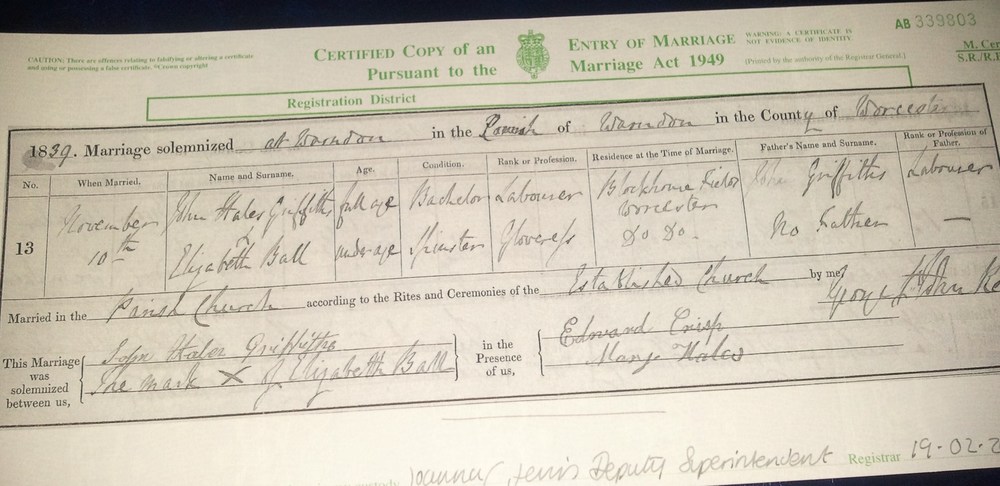 AB 339803
CERTIFIED COPY of an ENTRY OF MARRIAGE
Pursuant to the Marriage Act 1949
CAUTION: There are offences relating to falsifying or altering a certificate
and using or possessing a false certificate. ©Crown copyright
WARNING: A CERTIFICATE IS
NOT EVIDENCE OF IDENTITY
(Printed by the authority of the Registrar General.)
M. Cer
S.R./R.B
Registration District
1839. Marriage solemnized at Warndon in the Parish of Warndon in the County of Worcester
No. When Married. Name and Surname. Age. Condition. Rank or Profession. Residence at the Time of Marriage. Father's Name and Surname. Rank or Profession of Father.
13 November 10th
John Hales Griffiths full age Bachelor Labourer Blockhouse Fields Worcester John Griffiths Labourer
&
Elizabeth Ball under age Spinster Gloveress Do Do. No Father —
Married in the Parish Church according to the Rites and Ceremonies of the Established Church by me,
This Marriage was solemnized between us,
John Hales Griffiths
The mark X of Elizabeth Ball
in the Presence of us,
Edward Crisp
Mary Hales
Deputy Superintendent Registrar 19-02-2